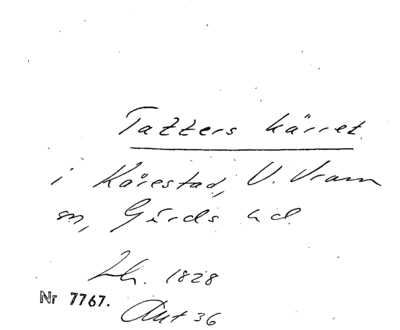 Tatters kärret
i Kårestad, V. Vram
sn, Gärds hd.
Lh. 1828
Nr 7767.
Aut 36